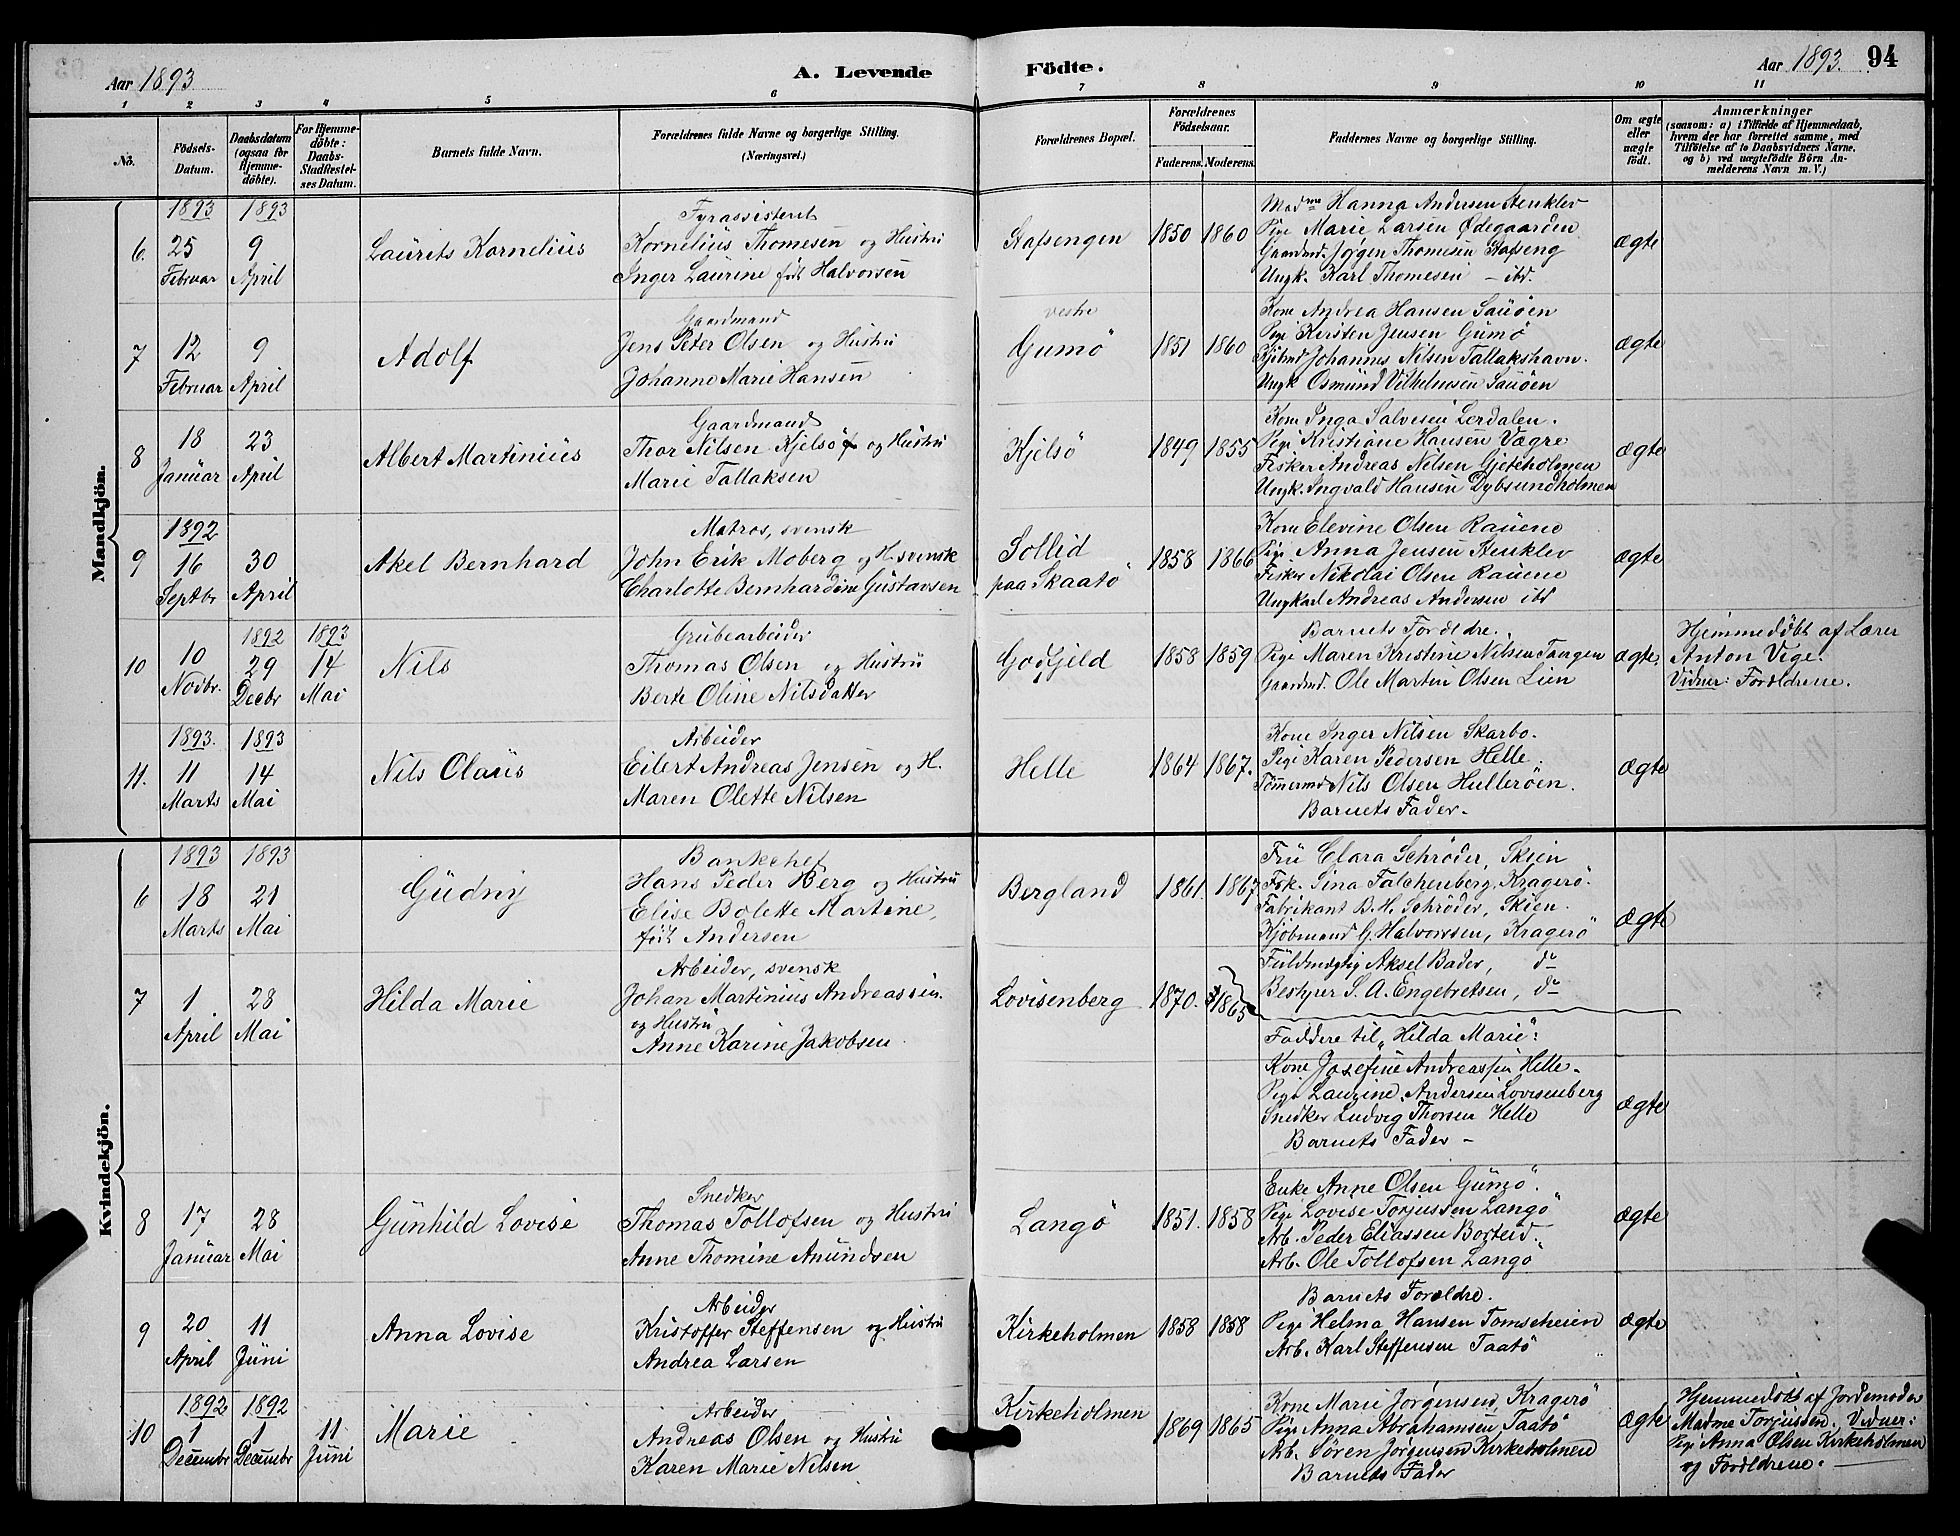 Aar 1893
A. Levende
Födte.
Aar 1893.
94
1
2
3
4
5
6
7
8
9
10
11
No.
Födsels-
Datum.
Daabsdatum
(ogsaa for
Hjemme-
döbte).
For Hjemme-
döbte:
Daabs-
Stadfestel-
ses Datum.
Barnets fulde Navn.
Forældrenes fulde Navne og borgerlige Stilling.
(Næringsvei.)
Forældrenes Bopæl.
Forældrenes
Födselsaar.
Faderens.
Moderens.
Faddernes Navne og borgerlige Stilling.
Om ægte
eller
uægte
født.
Anmærkninger
(saasom: a) i Tilfælde af Hjemmedaab,
hvem der har forrettet samme, med
Tilföielse af to Daabsvidners Navne,
og b) ved uægtefödte Börn An-
melderens Navn m. V.)
Mandkjön.
1893
1893
6.
25
Februar
9
April
Laurits Kornelius
Fyrassistent
Kornelius Thomesen og Hustru
Inger Laurine født Halvorsen
Stafsengen
1850
1860
Madme Hanna Andersen Stenklev
Pige Marie Larsen Ødegaarden
Gaardmd. Jørgen Thomesen Stafseng
Ungk. Karl Thomesen – ibd.
ægte
7
12
Februar
9
April
Adolf
Gaardmand
Jens Peter Olsen og Hustru
Johanne Marie Hansen
vestre
Gumö
1851
1860
Kone Andrea Hansen Sauöen
Pige Kirsten Jensen Gumö
Johannes Nilsen Tallakshavn.
Ungk. Osmund Vilhelmsen Sauöen
ægte
8
18
Januar
23
April
Albert Martinius
Gaardmand
Thor Nilsen Kjelsö og Hustru
Marie Tallaksen
Kjelsö
1849
1855
Kone Inga Salvesen Lerdalen.
Pige Kristiane Hansen Vægre
Fisker Andreas Nilsen Gjeteholmen
Ungk. Ingvald Hansen Dybsundholmen
ægte
1892
9
16
Septbr
30
April
Akel Bernhard
Matros, svensk
John Erik Moberg og H. svensk
Charlotte Bernhardine Gustavsen
Sollid
paa Skaatö
1858
1866
Kone Elevine Olsen Rauene
Pige Anna Jensen Stenklev
Fisker Nikolai Olsen Rauene
Ungkarl Andreas Andersen ibd
ægte
1892
1893
10
10
Novbr.
29
Decbr
14
Mai
Nils
Grubearbeider
Thomas Olsen og Hustru
Berte Oline Nilsdatter
Godfjeld
1858
1859
Barnets Forældre.
Pige Maren Kristine Nilsen Tangen
Gaardmd. Ole Martin Olsen Lien
ægte.
Hjemmedöbt af Lærer
Anton Vige.
Vidner: Forældrene.
1893.
1893
11.
11
Marts
14
Mai
Nils Olaus
Arbeider
Eilert Andreas Jensen og H.
Maren Olette Nilsen
Helle
1864
1867.
Kone Inger Nilsen Skarbo.
Pige Karen Pedersen Helle.
Tömermd Nils Olsen Hulleröen.
Barnets Fader.
ægte
Kvindekjön.
1893
1893
6
18
Marts
21
Mai
Gudny
Bankchef
Hans Peder Berg og Hustru
Elise Bolette Martine,
født Andersen
Bergland
1861.
1867
Fru Clara Schrøder, Skien
Frk. Sina Falchenberg, Kragerö.
Fabrikant B. H. Schröder, Skien.
Kjöbmand G. Halvorsen, Kragerö
Fuldmægtig Aksel Bader, do
Bestyrer S. A. Engebretsen, do
ægte
7
1
April
28
Mai
Hilda Marie
Arbeider, svensk
Johan Martinius Andreassen.
og Hustru
Anne Karine Jakobsen
Lovisenberg
1870.
1865
Faddere til „Hilda Marie":
Kone Josefine Andreassen Helle.
Pige Laurine Andersen Lovisenberg
Snedker Ludvig Thorsen Helle
Barnets Fader –
ægte
8
17
Januar
28
Mai
Gunhild Lovise
Snedker
Thomas Tollofsen og Hustru
Anne Thomine Amundsen
Langö
1851.
1858
Enke Anne Olsen Gumö.
Pige Lovise Torjussen Langö
Arb. Peder Eliassen Borteid.
Arb. Ole Tollofsen Langö
ægte
9
20
April
11
Juni
Anna Lovise
Arbeider
Kristoffer Steffensen og Hustru
Andrea Larsen
Kirkeholmen
1858
1858
Barnets Forældre.
Pige Helma Hansen Tomseheien
Arb. Karl Steffensen Taatö
ægte
1892
1892
10
1
Decembr
1
Decembr
11
Juni
Marie
Arbeider
Andreas Olsen og Hustru
Karen Marie Nilsen
Kirkeholmen
1869
1865
Kone Marie Jørgensen, Kragerö
Pige Anna Abrahamsen Taatö
Arb. Sören Jörgensen Kirkeholmen
Barnets Fader
ægte
Hjemmedöbt af Jordemoder
Madme Torjussen. Vidner:
Pige Anna Olsen Kirkeholmen
og Forældrene.